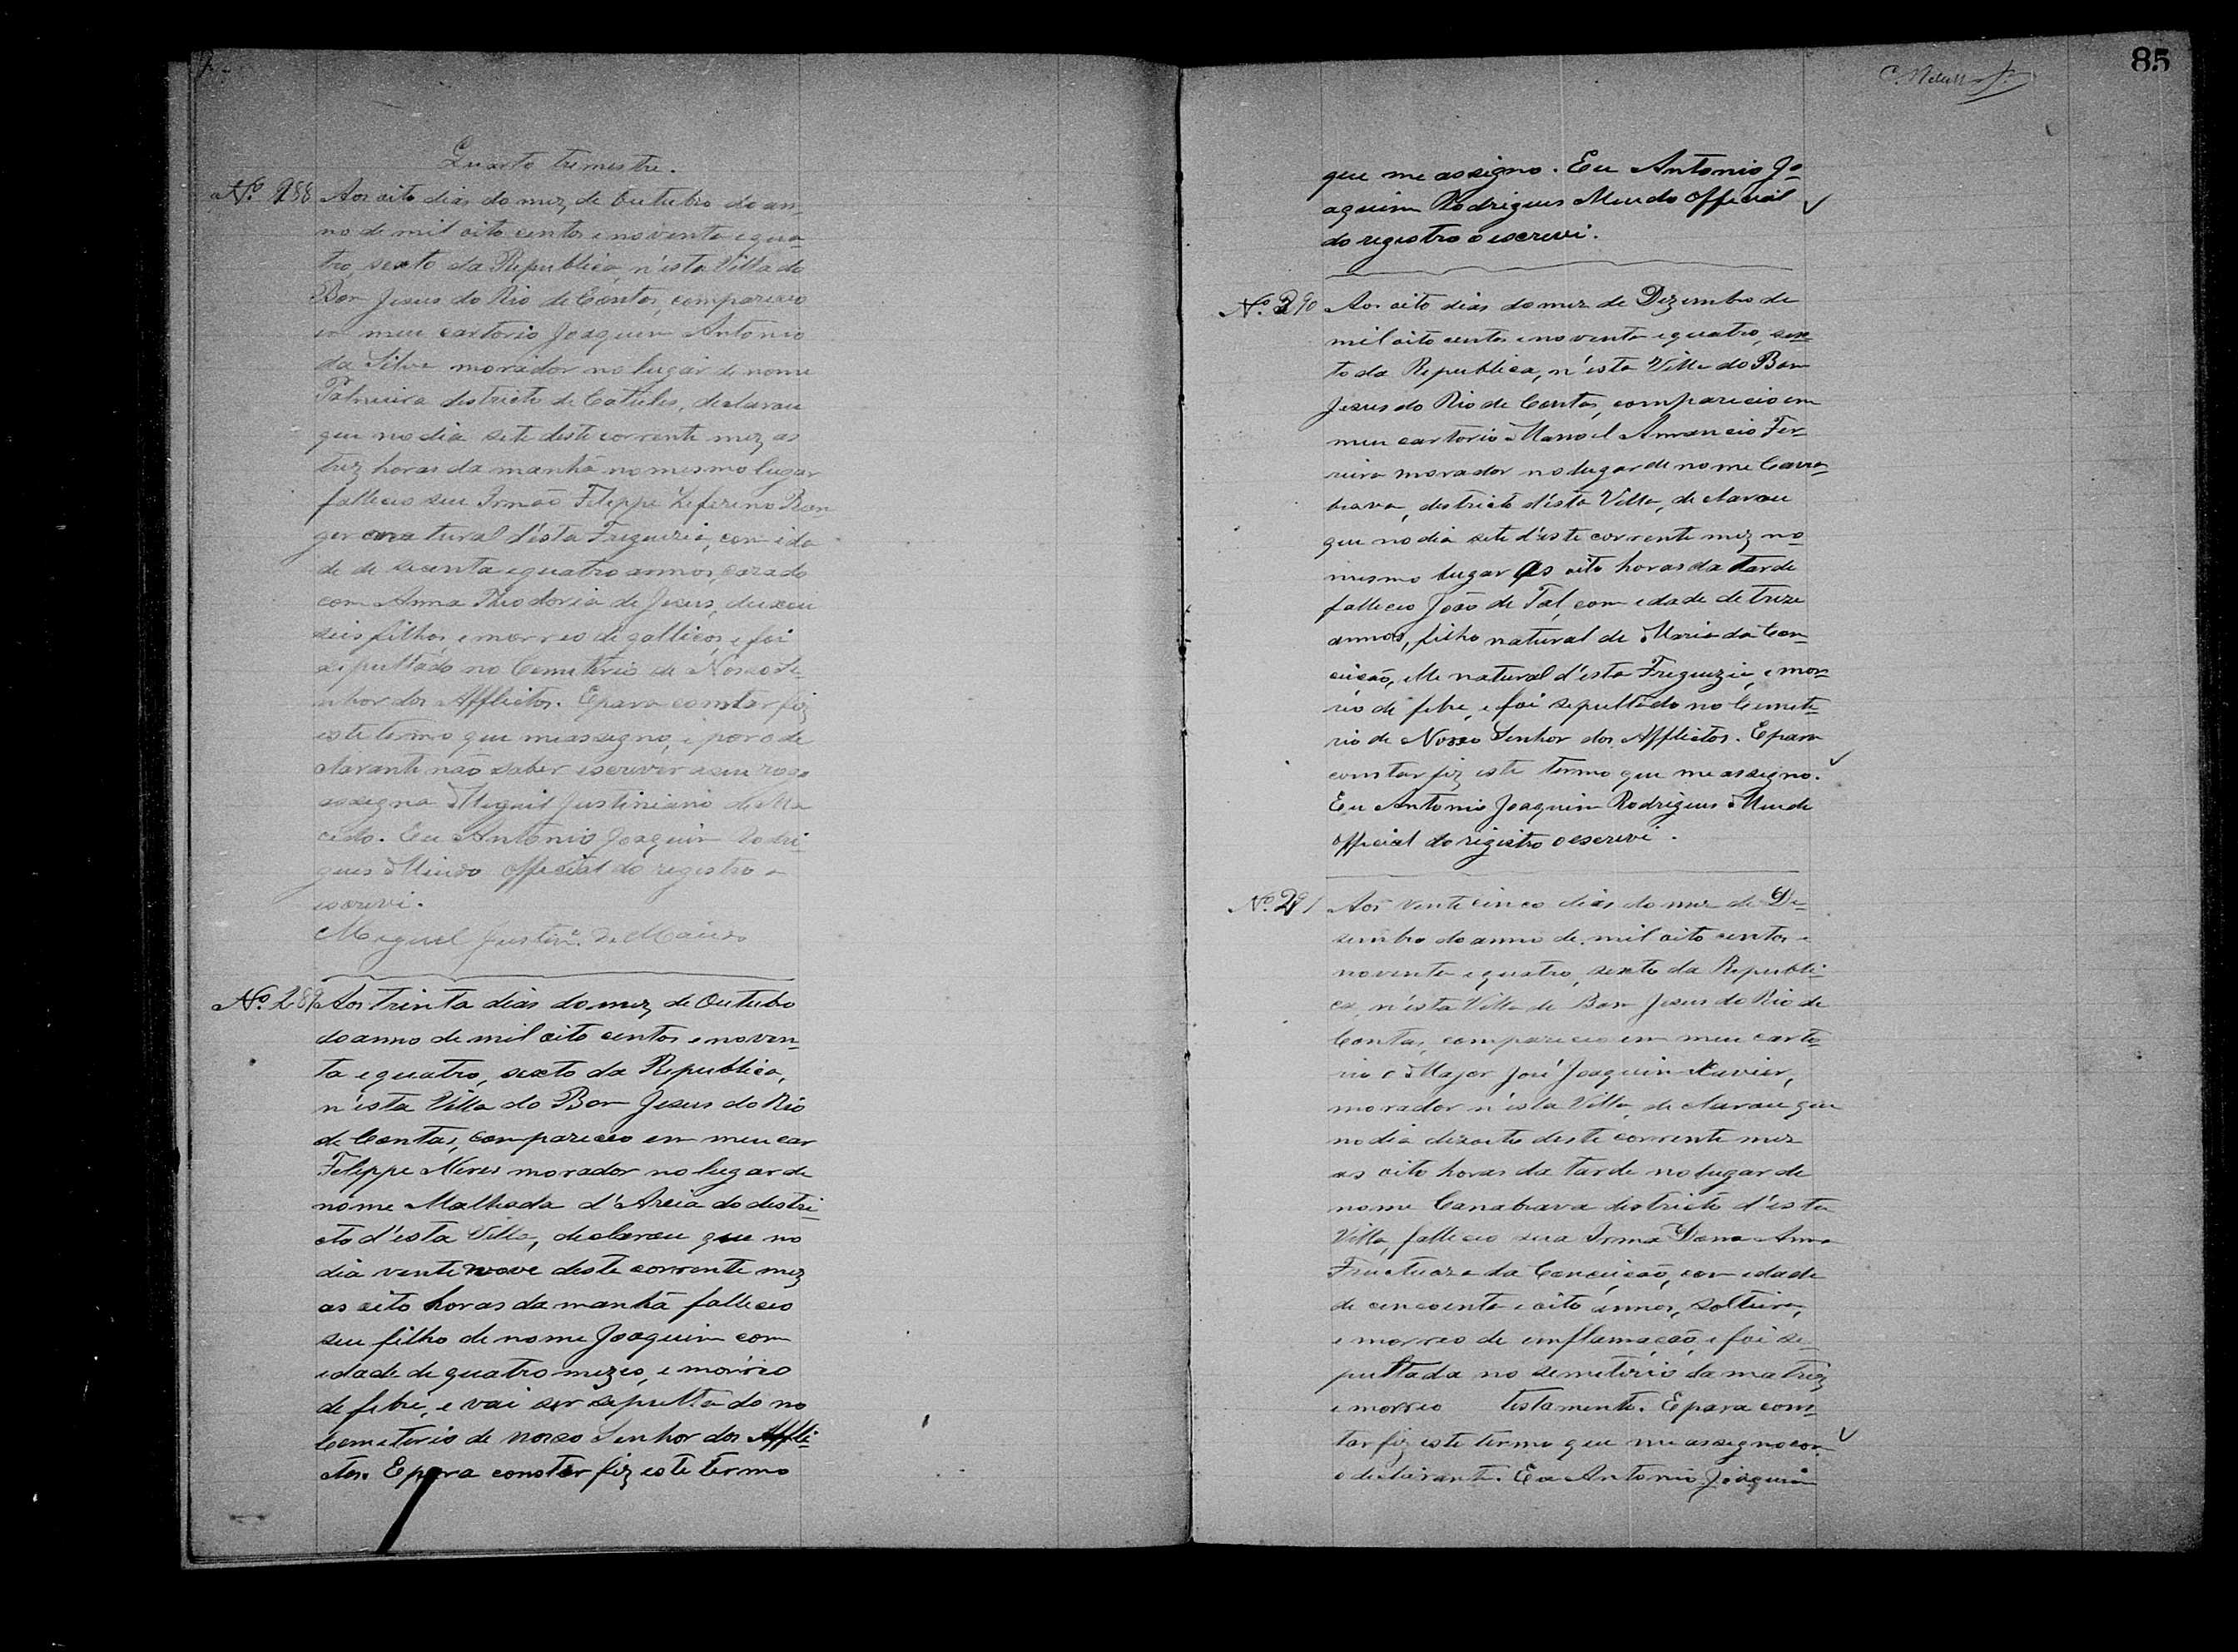 Quarto trimestre.
Nº 288 Aos oito dias do mez de Outubro do an-
no de mil oito centos e noventa e qua-
tro, sexto da Republica, n'esta Villa do
Bom Jesus do Rio de Contas, compareceo
em meu cartorio Joaquim Antonio
da Silva morador no lugar de nome
Palmeira districto de Catulés, declarou
que no dia sete deste corrente mez as
trez horas da manhã no mesmo lugar
falleceo seu Irmão Felippe Zeferino
natural d'esta Freguezia, com ida
de de secenta e quatro annos, cazado
com Anna Theodoria de Jesus, deixou
seis filhos, e morreo de gallicos, e foi
sepultado no Cemiterio de Nosso Se-
nhor dos Afflictos. E para constar fiz
este termo que me assigno, e por o de
clarante não saber escrever a seu rogo
assigna Miguel Justiniano de Ma
cedo. Eu Antonio Joaquim Rodri
gues Mendo official do registro o
escrevi.
Miguel Justinº. de Macedo
Nº 289 Aos trinta dias do mez de Outubo
do anno de mil oito centos e noven-
ta e quatro, sexto da Republica,
n'esta Villa do Bom Jesus do Rio
de Contas, compareceo em meu car
Felippe Neres morador no lugar de
nome Malhada d'Areia do destri-
cto d'esta Villa, declarou que no
dia vente nove deste corrente mez
as oito horas da manhã falleceo
seu filho de nome Joaquim com
idade de quatro mezes, e morreo
de febre, e vai ser sepultado no
Cemeterio de Nosso Senhor dos Affli-
ctos. E para constar fiz este termo
85
que me assigno. Eu Antonio Jo-
aquim Rodrigues Mendo Official
do registro o escrevi.
Nº. 290 Aos oito dias do mez de Dezembro de
mil oito centos e noventa e quatro, sex-
to da Republica, n'esta Villa do Bom
Jesus do Rio de Contas, compareceo em
meu cartorio Manoel Amancio Fer-
reira morador no lugar de nome Canna
brava, destricto d'esta Villa, declarou
que no dia sete d'este corrente mez no
mesmo lugar as oito horas da tarde
falleceo João de Tal, com idade de treze
annos, filho natural de Maria da Con-
ceicão, elle natural d'esta Freguezia, e mor-
reo de febre, e foi sepultado no Cemite-
rio de Nosso Senhor dos Afflictos. E para
constar fiz este termo que me assigno.
Eu Antonio Joaquim Rodrigues Mendo
official do registro o escrevi.
Nº. 291 Aos vente cinco dias do mez de De-
zembro do anno de mil oito centos e
noventa e quatro, sexto da Republi-
ca, n'esta Villa de Bom Jesus do Rio de
Contas, compareceo em meu carto-
rio o Major José Joaquim Xavier,
morador n'esta Villa, declarou que
no dia dezoito deste corrente mez
as oito horas da tarde no lugar de
nome Canabrava destricto d'esta
Villa, falleceo sua Irmã Dona Anna
Fructuoza da Conceicão, com idade
de cencoenta e oito annos, solteira,
e morreo de emflamação, e foi se-
pultada no semeterio da matriz
e morreo testamento. E para cons-
tar fiz este termo que me assigno com
o declarante. Eu Antonio Joaquim